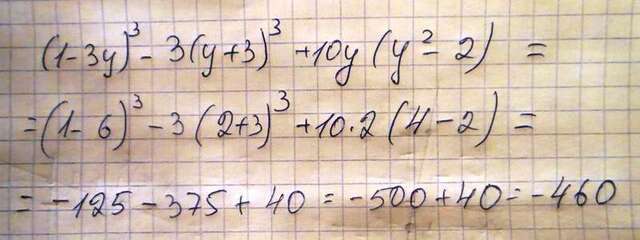 (1-3y)³ - 3(y+3)³ + 10y(y²-2) =
= (1-6)³ - 3(2+3)³ + 10·2(4-2) =
= -125 - 375 + 40 = -500 + 40 = -460